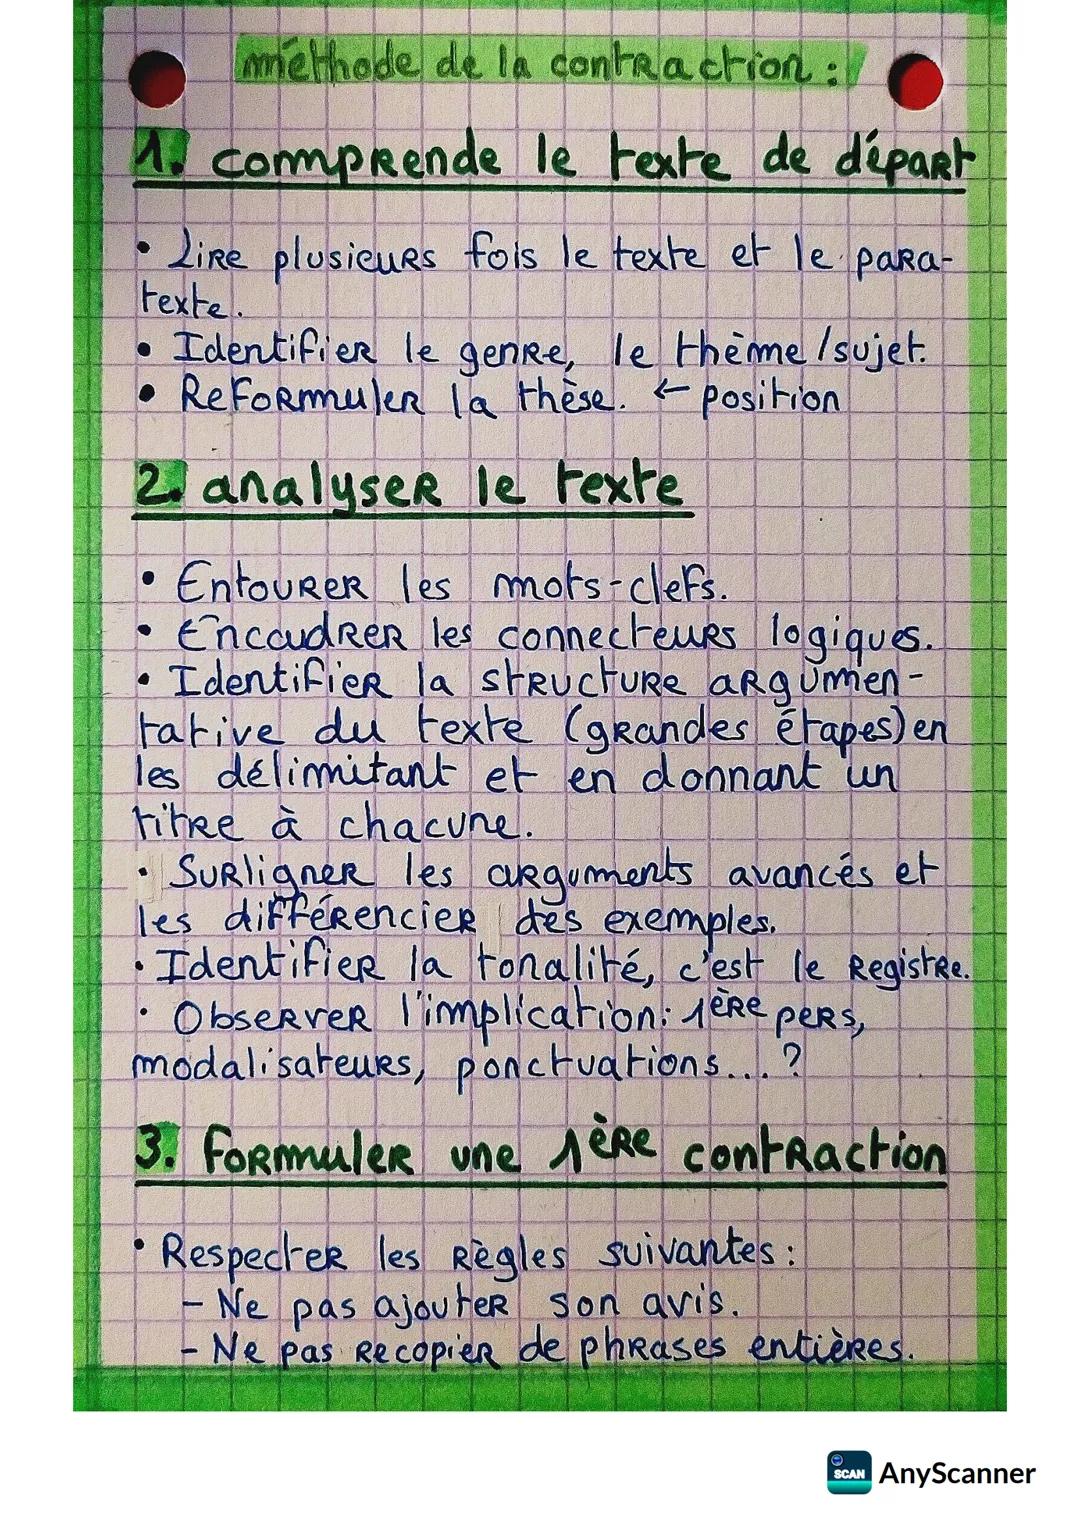 méthode de la contraction :
1. comprende le texte de départ
• Lire plusieurs fois le texte et le para-
texte.
• Identifier le genre, le thème/sujet.
• Reformuler la thèse. ← position
2. analyser le texte
• Entourer les mots-clefs.
• Encaudrer les connecteurs logiques.
• Identifier la structure argumen-
tative du texte (grandes étapes) en
les délimitant et en donnant un
titre à chacune.
• Surligner les arguments avancés et
les différencier des exemples.
• Identifier la tonalité, c'est le registre.
• Observer l'implication: 1ère pers,
modalisateurs, ponctuations...?
3. formuler une 1ère contraction
• Respecter les règles suivantes :
- Ne pas ajouter son avis.
- Ne pas recopier de phrases entières.
SCAN AnyScanner